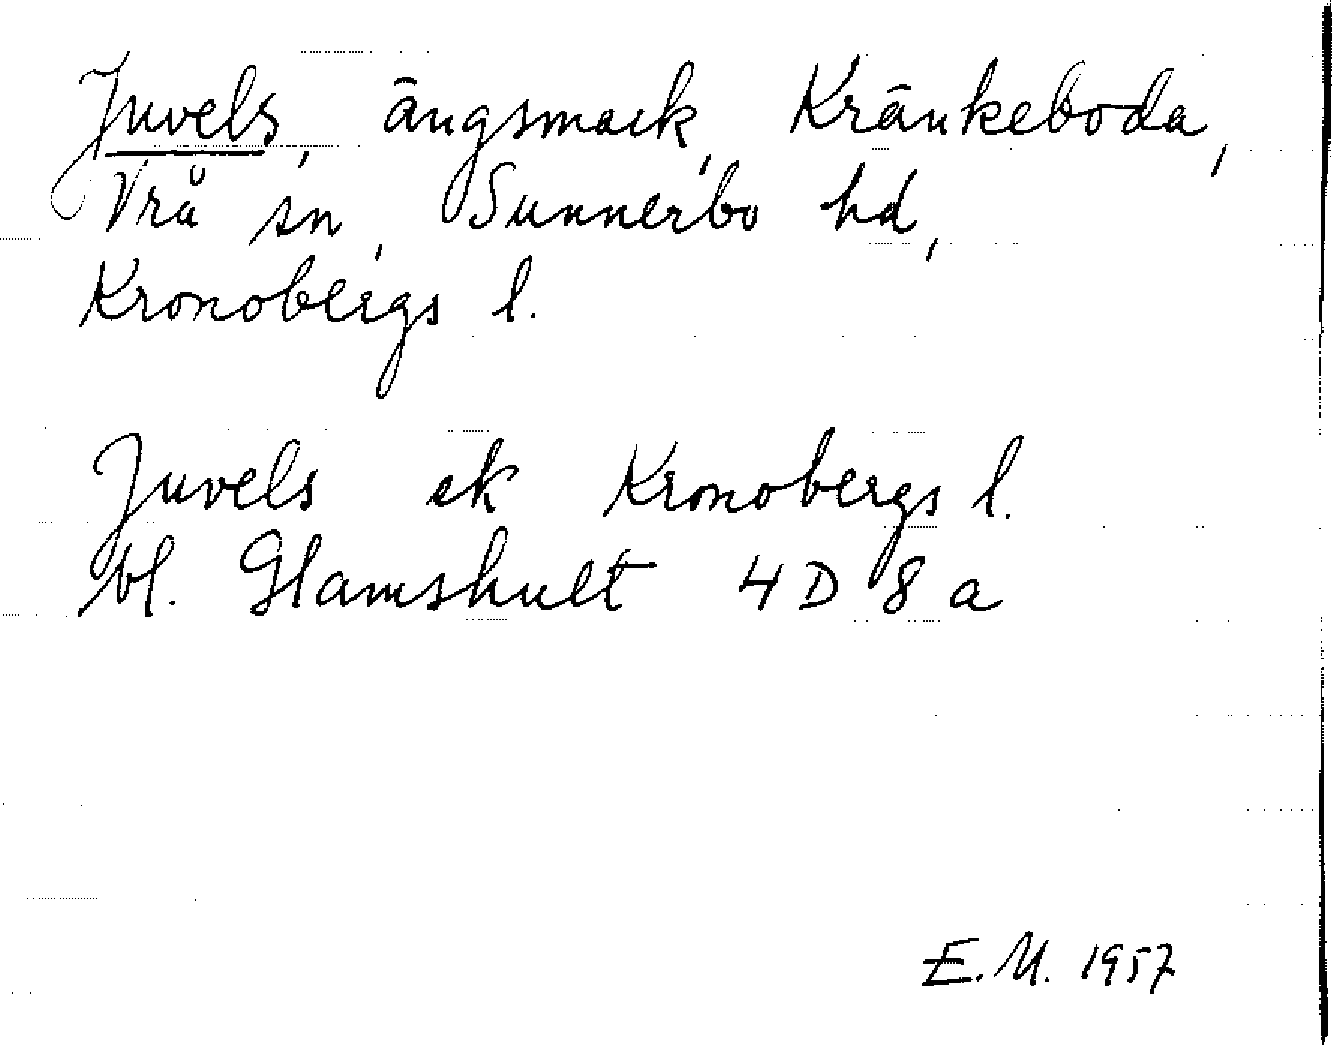 Juvels, ängsmark, Kränkeboda,
Vrå sn, Sunnerbo hd,
Kronobergs l.
Juvels ek Kronobergs l.
bl. Glamshult 4D 8 a
E.M. 1957